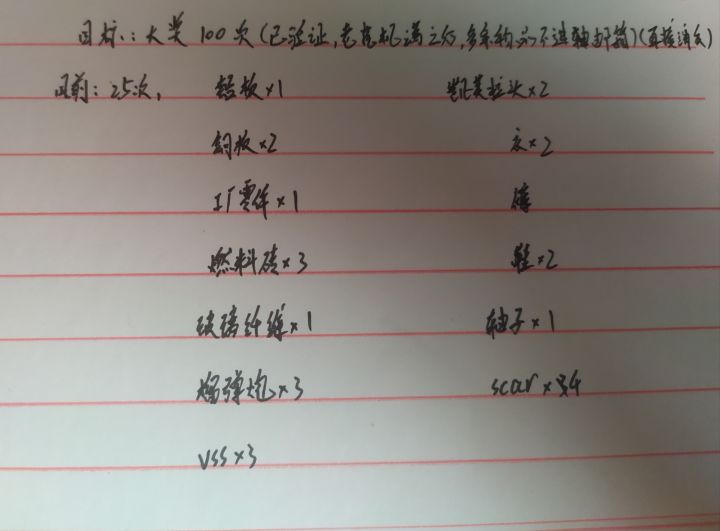 目标：大奖100次（已验证，老虎机满之后，多余的不进邮箱）（直接消失）
目前：25次， 铝板×1 凯芙拉头×2
钢板×2 衣×2
工厂零件×1 裤
燃料砖×3 鞋×2
玻璃纤维×1 轴子×1
榴弹炮×3 scar×4
vss×3